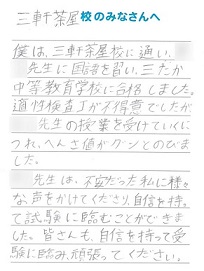 三軒茶屋校のみなさんへ
僕は、三軒茶屋校に通い、
先生に国語を習い、三だか
中等教育学校に合格しました。
適性検査Iが不得意でしたが
先生の授業を受けていくに
つれ、へんさ値がグンとのびま
した。
先生は、不安だった私に様々
な声をかけてくださり、自信を持っ
て試験に臨むことができま
した。皆さんも、自信を持って受
験に臨み、頑張ってください。